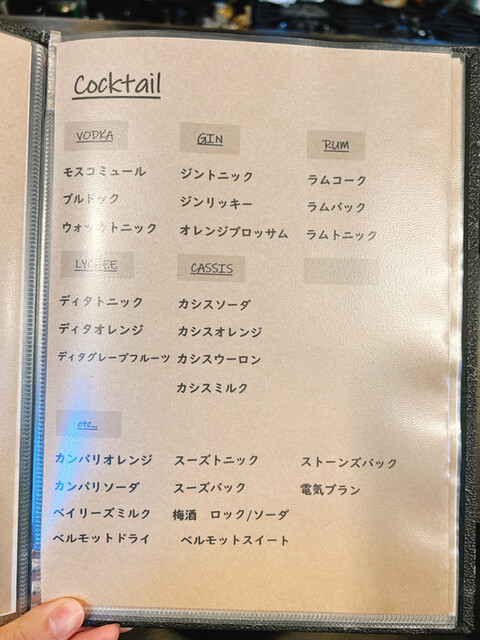 Cocktail
VODKA
モスコミュール
ブルドック
ウォッカトニック
GIN
ジントニック
ジンリッキー
オレンジブロッサム
RUM
ラムコーク
ラムバック
ラムトニック
LYCHEE
ディタトニック
ディタオレンジ
ディタグレープフルーツ
CASSIS
カシスソーダ
カシスオレンジ
カシスウーロン
カシスミルク
etc...
カンパリオレンジ
カンパリソーダ
ベイリーズミルク
ベルモットドライ
スーズトニック
スーズバック
梅酒 ロック/ソーダ
ベルモットスイート
ストーンズバック
電気ブラン